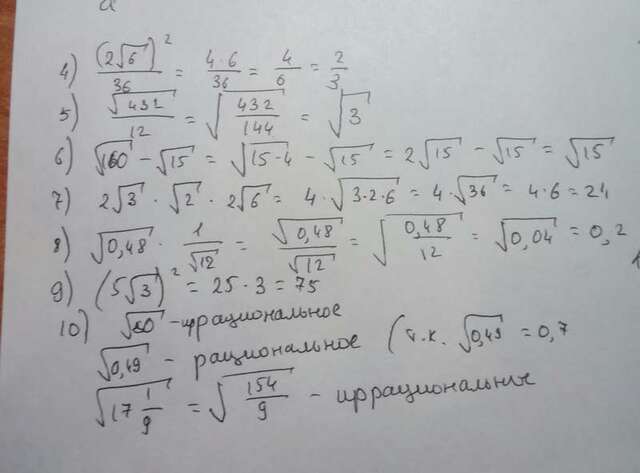 4) (2√6)²/36 = 4·6/36 = 4/6 = 2/3
5) √432/12 = √(432/144) = √3
6) √60 - √15 = √(15·4) - √15 = 2√15 - √15 = √15
7) 2√3 · √2 · 2√6 = 4·√(3·2·6) = 4·√36 = 4·6 = 24
8) √0,48 · 1/√12 = √0,48/√12 = √(0,48/12) = √0,04 = 0,2
9) (5√3)² = 25·3 = 75
10) √60 - иррациональное
√0,49 - рациональное (т.к. √0,49 = 0,7
√(17 1/9) = √(154/9) - иррациональные